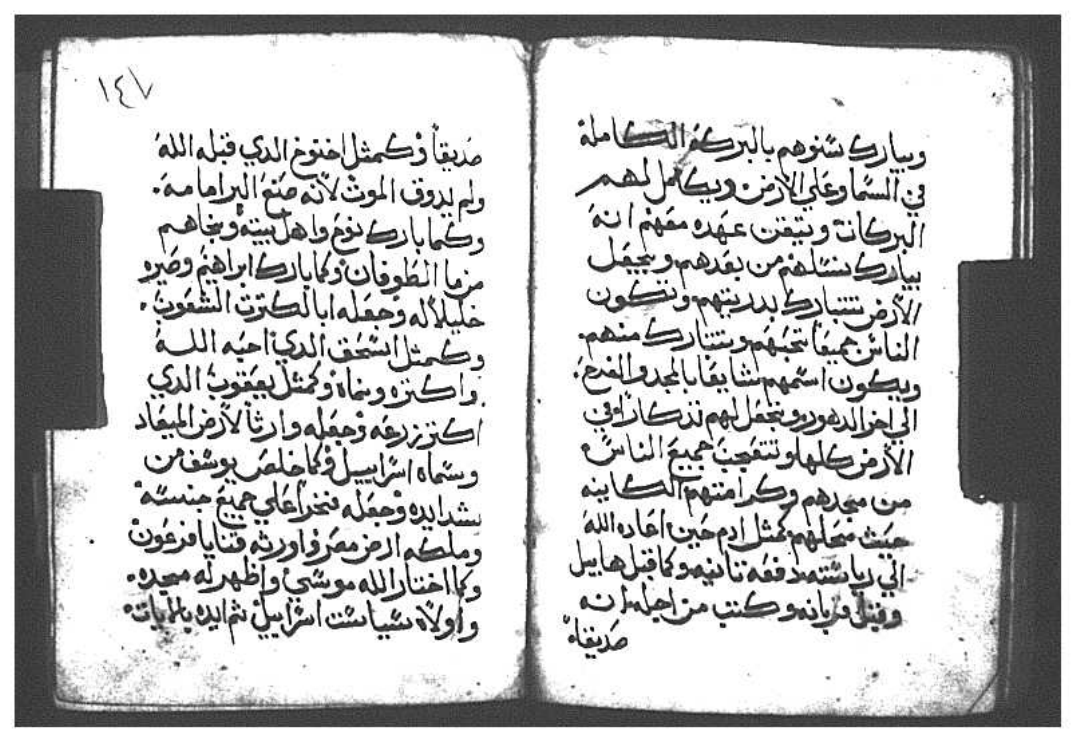 ويبارك سنوهم بالبركة الكاملة
في السما وعلي الارض ويكامل لهم
البركات وتتيقن عهده معهم انه
يبارك نسلهم من بعدهم ويجعل
الارض تتبارك بدريتهم وتكون
الناس جميعا تحبهم وتتبارك منهم
ويكون اسمهم شايعا بالمجد والفدع
الي اخر الدهور ويجعل لهم تذكارا في
الارض كلها وتتعجب جميع الناس
من مجدهم وكرامتهم الكاينه
حيث محلهم كمثل ادم حين اعاده الله
الي رياسته دفعه تانيه وكما قبل هابيل
وقبل قربانه وكتب من اجله انه
صديقا
١٤٧
صديقا وكمثل اخنوخ الدي قبله الله
ولم يدوق الموت لانه صنع البر امامه
وكما بارك نوح واهل بيته ونجاهم
من ما الطوفان وكما بارك ابراهيم وصيره
خليلا له وجعله ابا لكترت الشعوب
وكمثل اسحق الدي احبه الله
واكتره ونماه وكمثل يعقوب الدي
اكتر زرعه وجعله وارثا لارض الميعاد
وسماه اسراييل وكما خلص يوسف من
شدايده وجعله فخرا علي جميع جنسه
وملكه ارض مصر واورثه قنايا فرعون
وكما اختار الله موسي واظهر له مجده
واولاه سياست اسراييل ثم ايده بالايات